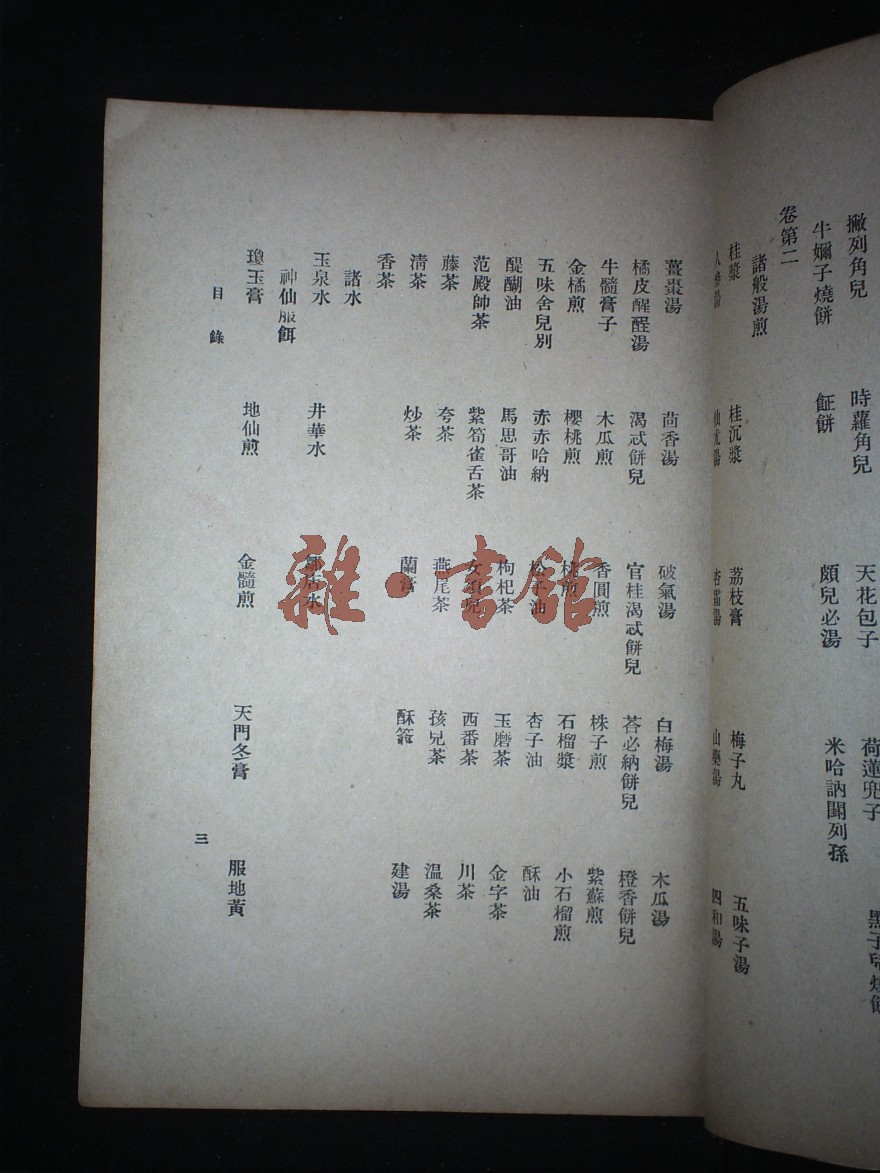 撇列角兒 時蘿角兒 天花包子 荷蓮兜子
牛嬭子燒餅 䤛餅 頗兒必湯 米哈訥關列孫
卷第二
諸般湯煎
桂漿 桂沉漿 荔枝膏 梅子丸 五味子湯
人參湯 仙朮湯 杏霜湯 山藥湯 四和湯
薑棗湯 茴香湯 破氣湯 白梅湯 木瓜湯
橘皮醒酲湯 渴忒餅兒 官桂渴忒餅兒 荅必納餅兒 橙香餅兒
牛髓膏子 木瓜煎 香圓煎 株子煎 紫蘇煎
金橘煎 櫻桃煎 桃煎 石榴漿 小石榴煎
五味舍兒別 赤赤哈納 松子油 杏子油 酥油
醍醐油 馬思哥油 枸杞茶 玉磨茶 金字茶
范殿帥茶 紫筍雀舌茶 女須兒 西番茶 川茶
藤茶 夸茶 燕尾茶 孩兒茶 温桑茶
清茶 炒茶 蘭膏 酥簽 建湯
香茶
諸水
玉泉水 井華水 鄒店水
神仙服餌
瓊玉膏 地仙煎 金髓煎 天門冬膏 服地黃
目錄
三
雜·書館